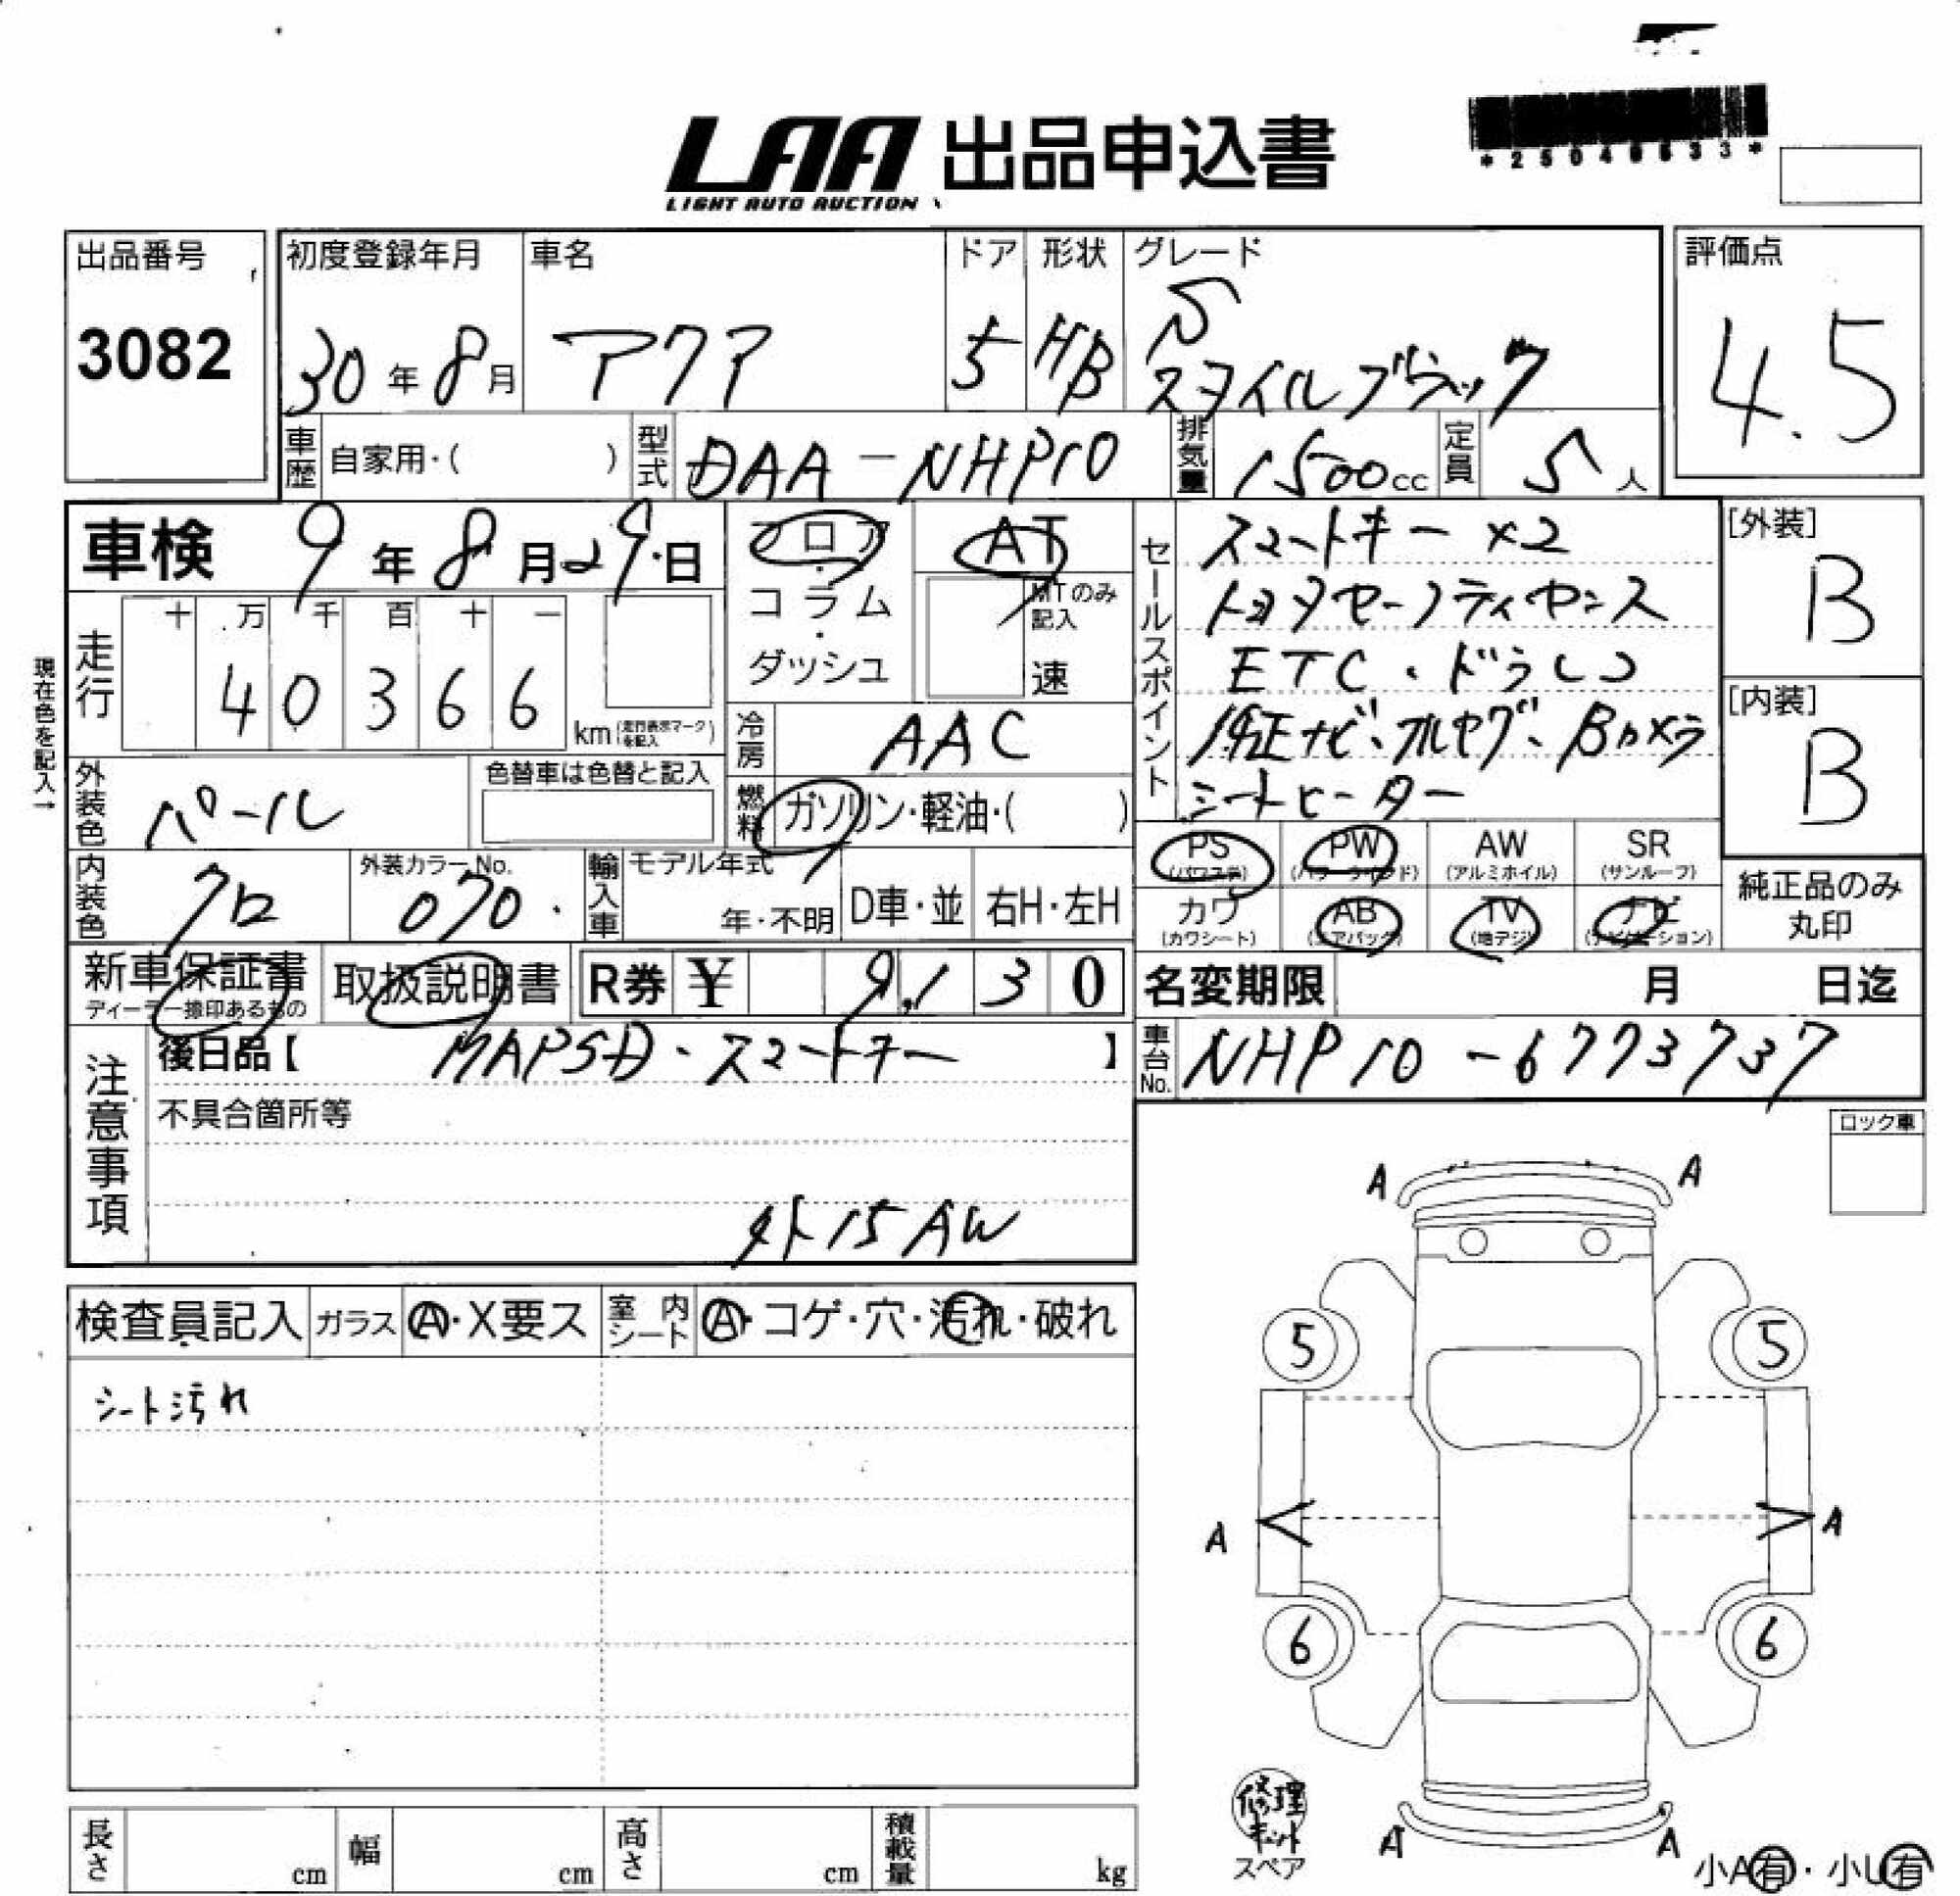 LAA 出品申込書
LIGHT AUTO AUCTION
出品番号
3082
初度登録年月
30年8月
車名
アクア
ドア
5
形状
HB
グレード
S
スタイルブラック
評価点
4.5
車歴
自家用・( )
型式
DAA-NHP10
排気量
1500cc
定員
5人
車検 9年8月29日
フロア・コラム・ダッシュ
AT
MTのみ記入
速
セールスポイント
スマートキー×2
トヨタセーフティセンス
ETC・ドラレコ
純正ナビ、フルセグ、Bカメラ
シートヒーター
[外装]
B
[内装]
B
現在色を記入→
走行
十 万 千 百 十 一
4 0 3 6 6
km(走行表示マークを記入)
冷房
AAC
外装色
パール
色替車は色替と記入
燃料
ガソリン・軽油・( )
PS (パワステ) PW (パワーウインド) AW (アルミホイル) SR (サンルーフ)
カワ (カワシート) AB (エアバック) TV (地デジ) ナビ (ナビゲーション)
純正品のみ丸印
内装色
クロ
外装カラーNo.
070
輸入車
モデル年式
年・不明
D車・並
右H・左H
新車保証書
ディーラー捺印あるもの
取扱説明書
R券 ¥ 9,130
名変期限 月 日迄
注意事項
後日品【 MAPSD、スマートキー 】
不具合箇所等
外15AW
車台No.
NHP10-6773737
ロック車
検査員記入
ガラス
A・X要ス
室内シート
A・コゲ・穴・汚れ・破れ
シート汚れ
A A
5 5
A A
6 6
A A
修理キット
スペア
小A有・小U有
長さ cm
幅 cm
高さ cm
積載量 kg